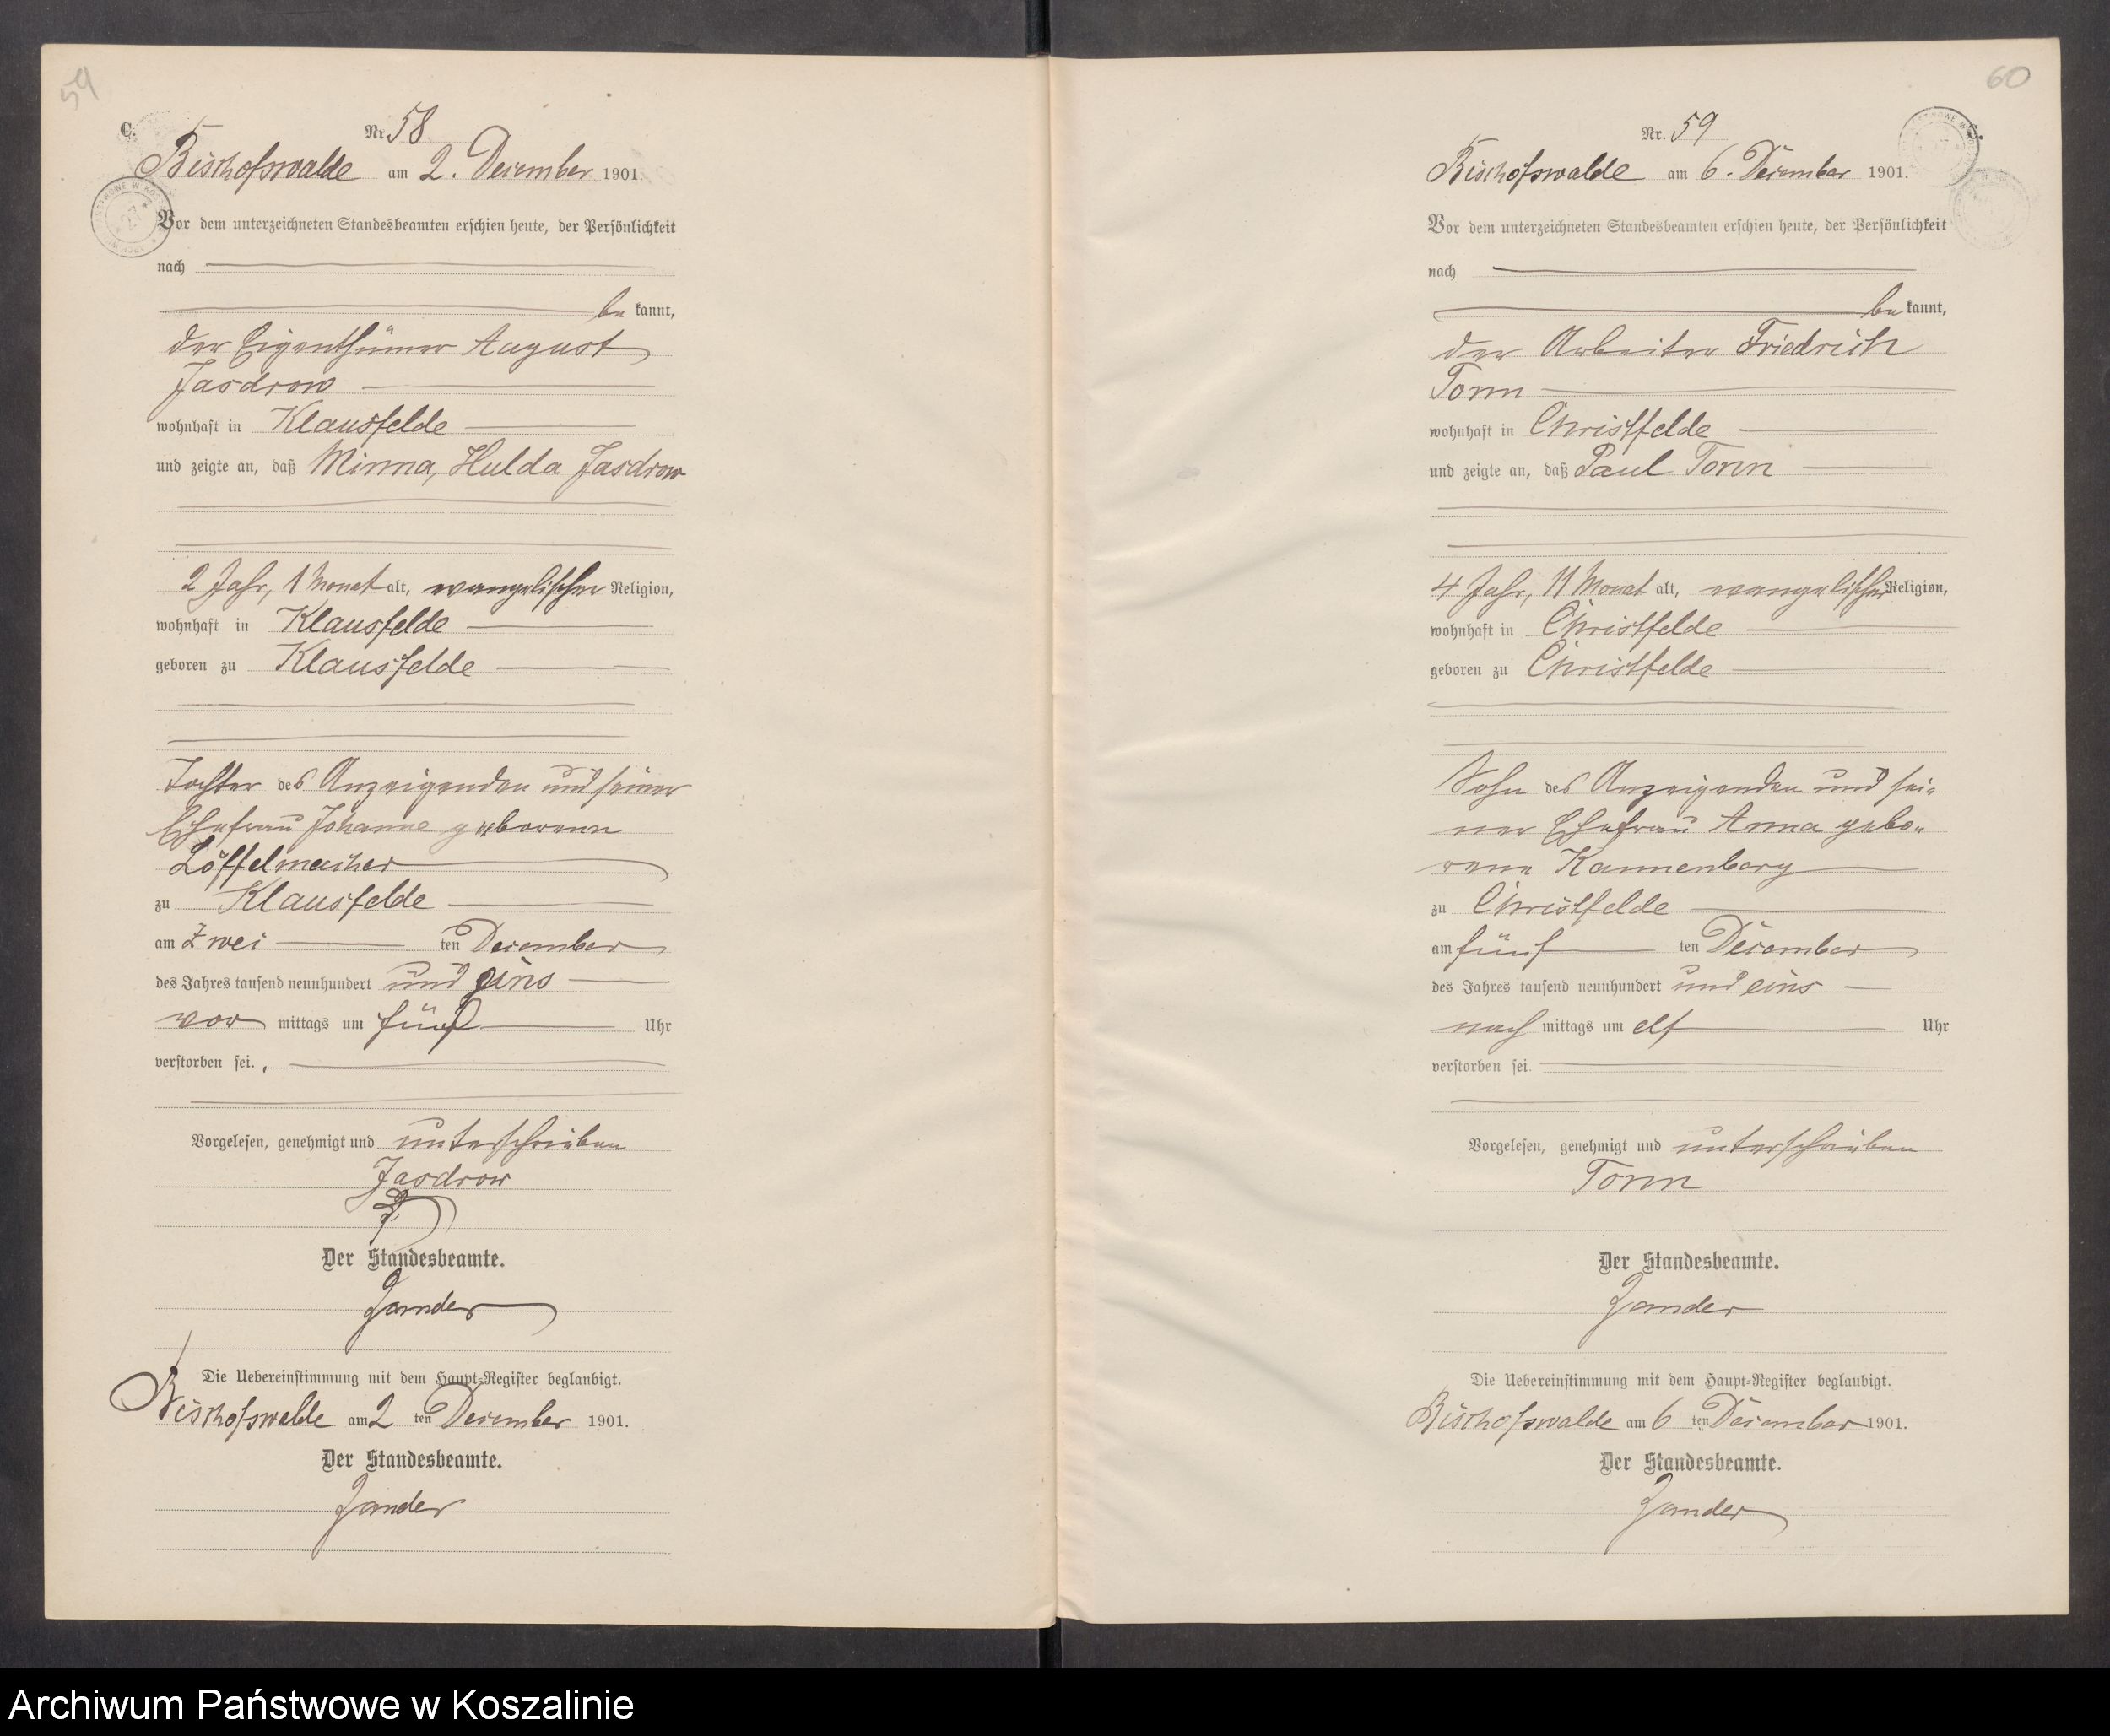 59
C.
Nr. 58
Bischofswalde am 2. December 1901.
Vor dem unterzeichneten Standesbeamten erschien heute, der Persönlichkeit
nach
be kannt,
der Eigenthümer August
Jasdrow
wohnhaft in Klausfelde
und zeigte an, daß Minna, Hulda Jasdrow
2 Jahr, 1 Monat alt, evangelischer Religion,
wohnhaft in Klausfelde
geboren zu Klausfelde
Tochter des Anzeigenden und seiner
Ehefrau Johanne geborenen
Löffelmacher
zu Klausfelde
am zwei ten December
des Jahres tausend neunhundert und eins
vor mittags um fünf Uhr
verstorben sei.
Vorgelesen, genehmigt und unterschrieben
Jasdrow
Der Standesbeamte.
Zander
Die Uebereinstimmung mit dem Haupt-Register beglaubigt.
Bischofswalde am 2 ten December 1901.
Der Standesbeamte.
Zander
60
C.
Nr. 59
Bischofswalde am 6. December 1901.
Vor dem unterzeichneten Standesbeamten erschien heute, der Persönlichkeit
nach
be kannt,
der Arbeiter Friedrich
Tonn
wohnhaft in Christfelde
und zeigte an, daß Paul Tonn
4 Jahr, 11 Monat alt, evangelischer Religion,
wohnhaft in Christfelde
geboren zu Christfelde
Sohn des Anzeigenden und sei-
ner Ehefrau Anna gebo-
rene Kannenberg
zu Christfelde
am fünf ten December
des Jahres tausend neunhundert und eins
nach mittags um elf Uhr
verstorben sei.
Vorgelesen, genehmigt und unterschrieben
Tonn
Der Standesbeamte.
Zander
Die Uebereinstimmung mit dem Haupt-Register beglaubigt.
Bischofswalde am 6 ten December 1901.
Der Standesbeamte.
Zander
Archiwum Państwowe w Koszalinie